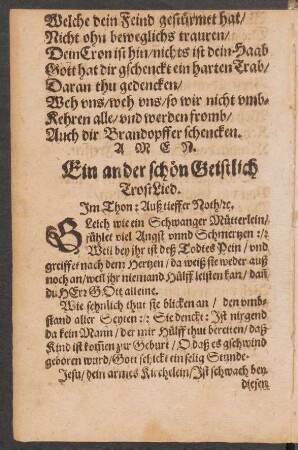 Welche dein Feind gestürmet hat/
Nicht ohn beweglichs trauren/
Dein Cron ist hin/nichts ist dein Haab
Gott hat dir gschenckt ein harten Trab/
Daran thu gedencken/
Weh vns/weh vns/so wir nicht vmb-
Kehren alle/vnd werden fromb/
Auch dir Brandopffer schencken.
A M E N.
Ein ander schön Geistlich
Trost Lied.
Im Thon: Auß tieffer Noth/ꝛc.
GLeich wie ein Schwanger Mütterlein/
fühlet viel Angst vnnd Schmertzen :/:
Weil bey jhr ist deß Todtes Pein/ vnd
greiffet nach dem Hertzen/da weiß sie weder auß
noch an/weil jhr niemand Hülff leisten kan/dañ
du HErꝛ GOtt alleine.
Wie sehnlich thut sie blicken an / den vmb-
stand aller Seyten :/: Sie denckt: Ist nirgend
da kein Mann/der mir Hülff thut bereiten/daß
Kind ist kom̃en zur Geburt/O daß es gschwind
geboren wurd/Gott schickt ein selig Stunde.
Jesu/dein armes Kirchelein/Ist schwach bey
diesen